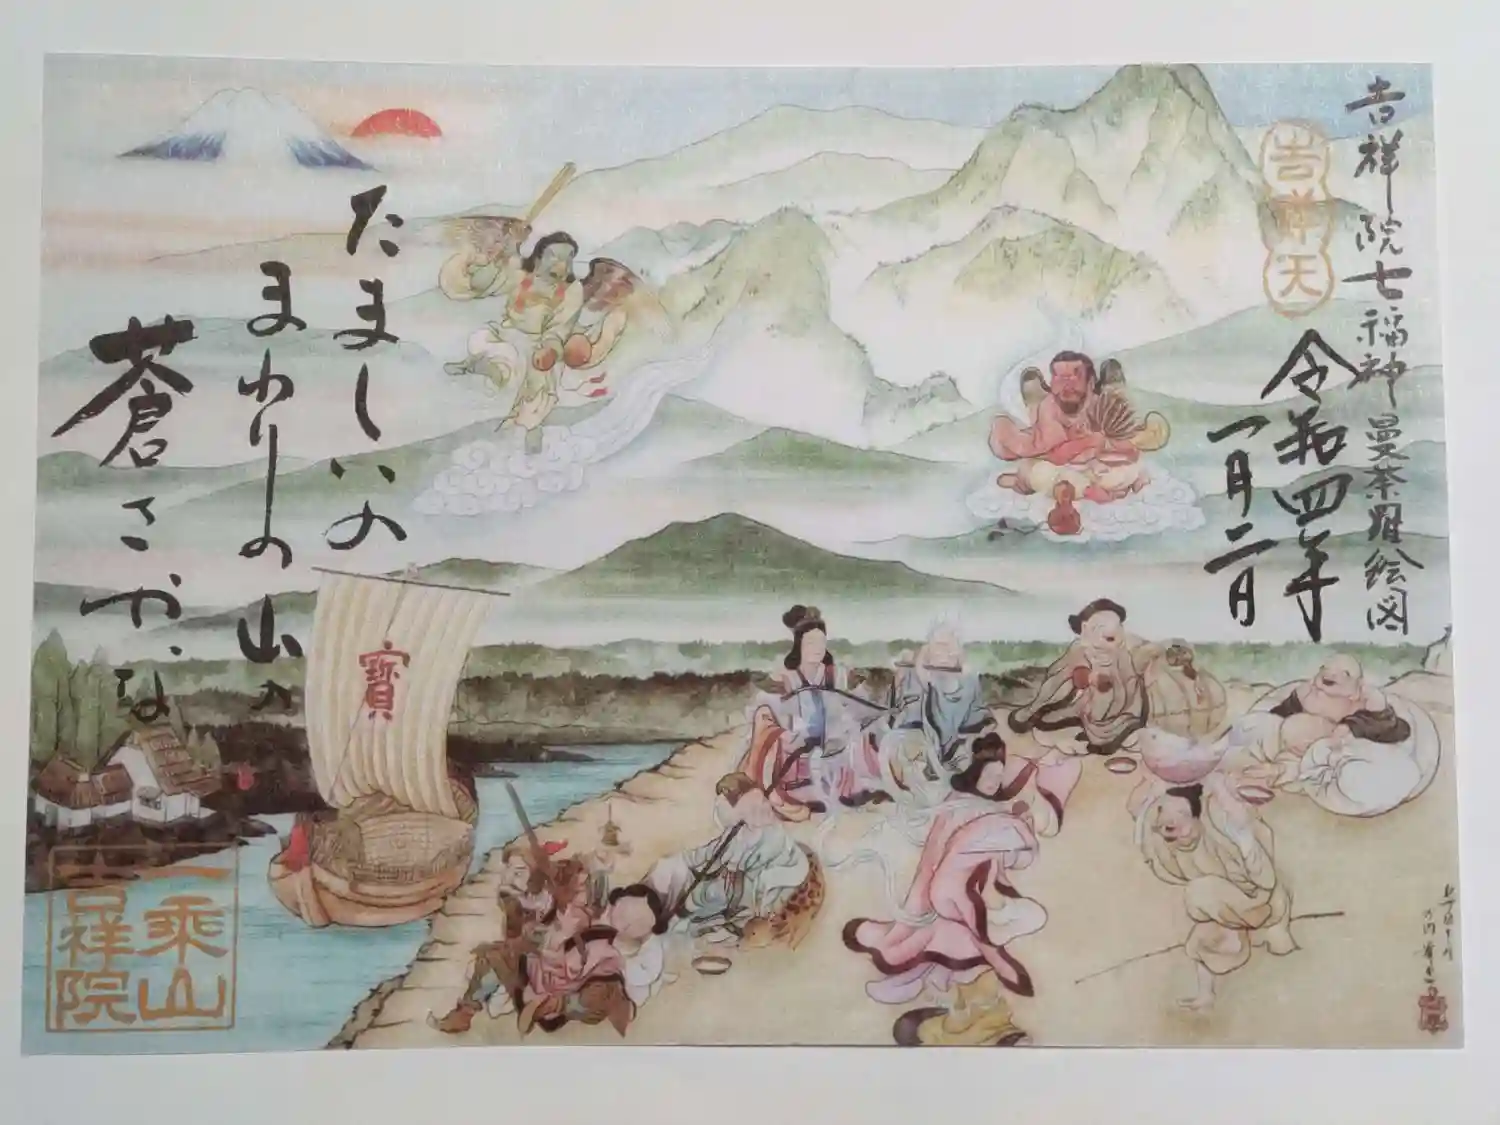 吉祥院七福神曼荼羅絵図
吉祥天
令和四年
一月二日
たましいの
まわりの山の
蒼さかな
寳
一乘山
吉祥院